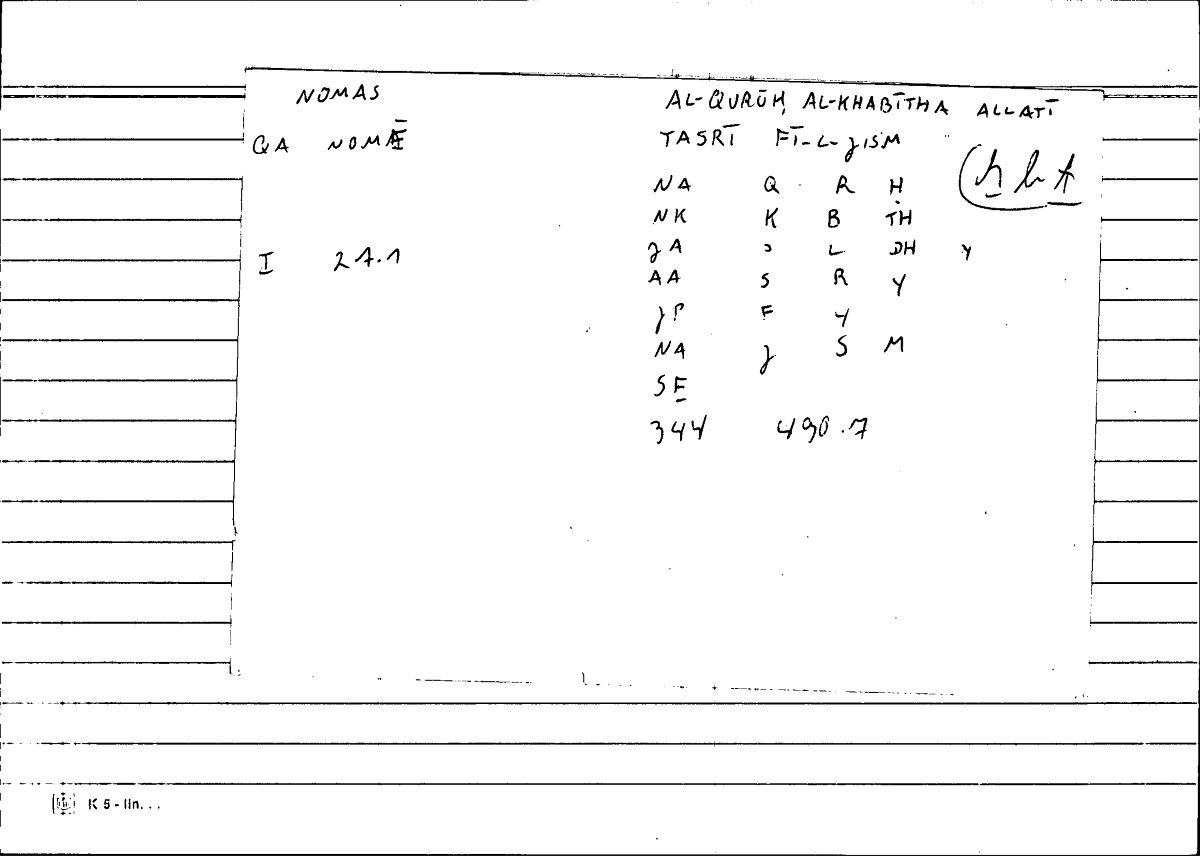 NOMAS
QA NOMĒ
I 27.1
AL-QURŪḤ, AL-KHABĪTHA ALLATĪ
TASRĪ FĪ-L-JISM
NA Q R Ḥ
NK K B TH
JA ɔ L DH Y
AA S R Y
JP F Y
NA J S M
SE
344 490.7
K 5 - lin...